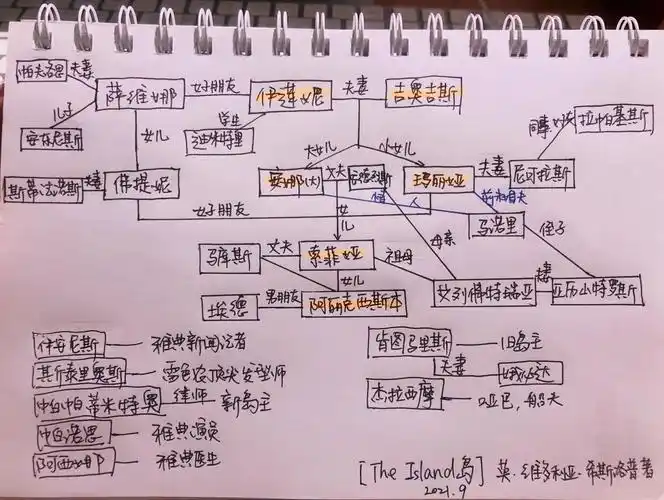 帕夫洛思 夫妻
薩维娜 女好朋友 伊莲妮 夫妻 吉奥吉斯
儿子 学生 同事好友 拉帕基斯
安东尼斯 女儿 迪米特里
大女儿 小女儿
斯蒂法诺斯 夫妻 佛提妮 安娜(大) 丈夫 安德烈斯 玛丽娅 夫妻 尼可拉斯
情 人 前未婚夫
女好朋友 女儿 马诺里
母亲 侄子
马库斯 丈夫 索菲娅 祖母
女儿 艾列佛特瑞亚 夫妻 亚历山特罗斯
埃德 男朋友 阿丽克西斯本
伊安尼斯 — 雅典新闻记者
其斯泰里奥斯 — 雷色农顶尖发型师 肯图马里斯 — 旧岛主
帕帕蒂米特奥 律师 新岛主 夫妻
帕洛思 — 雅典演员 杰拉西摩 — 哑巴,船夫
阿西娜 — 雅典医生
[The Island岛] 英·维多利亚·希斯洛普著
2021.9